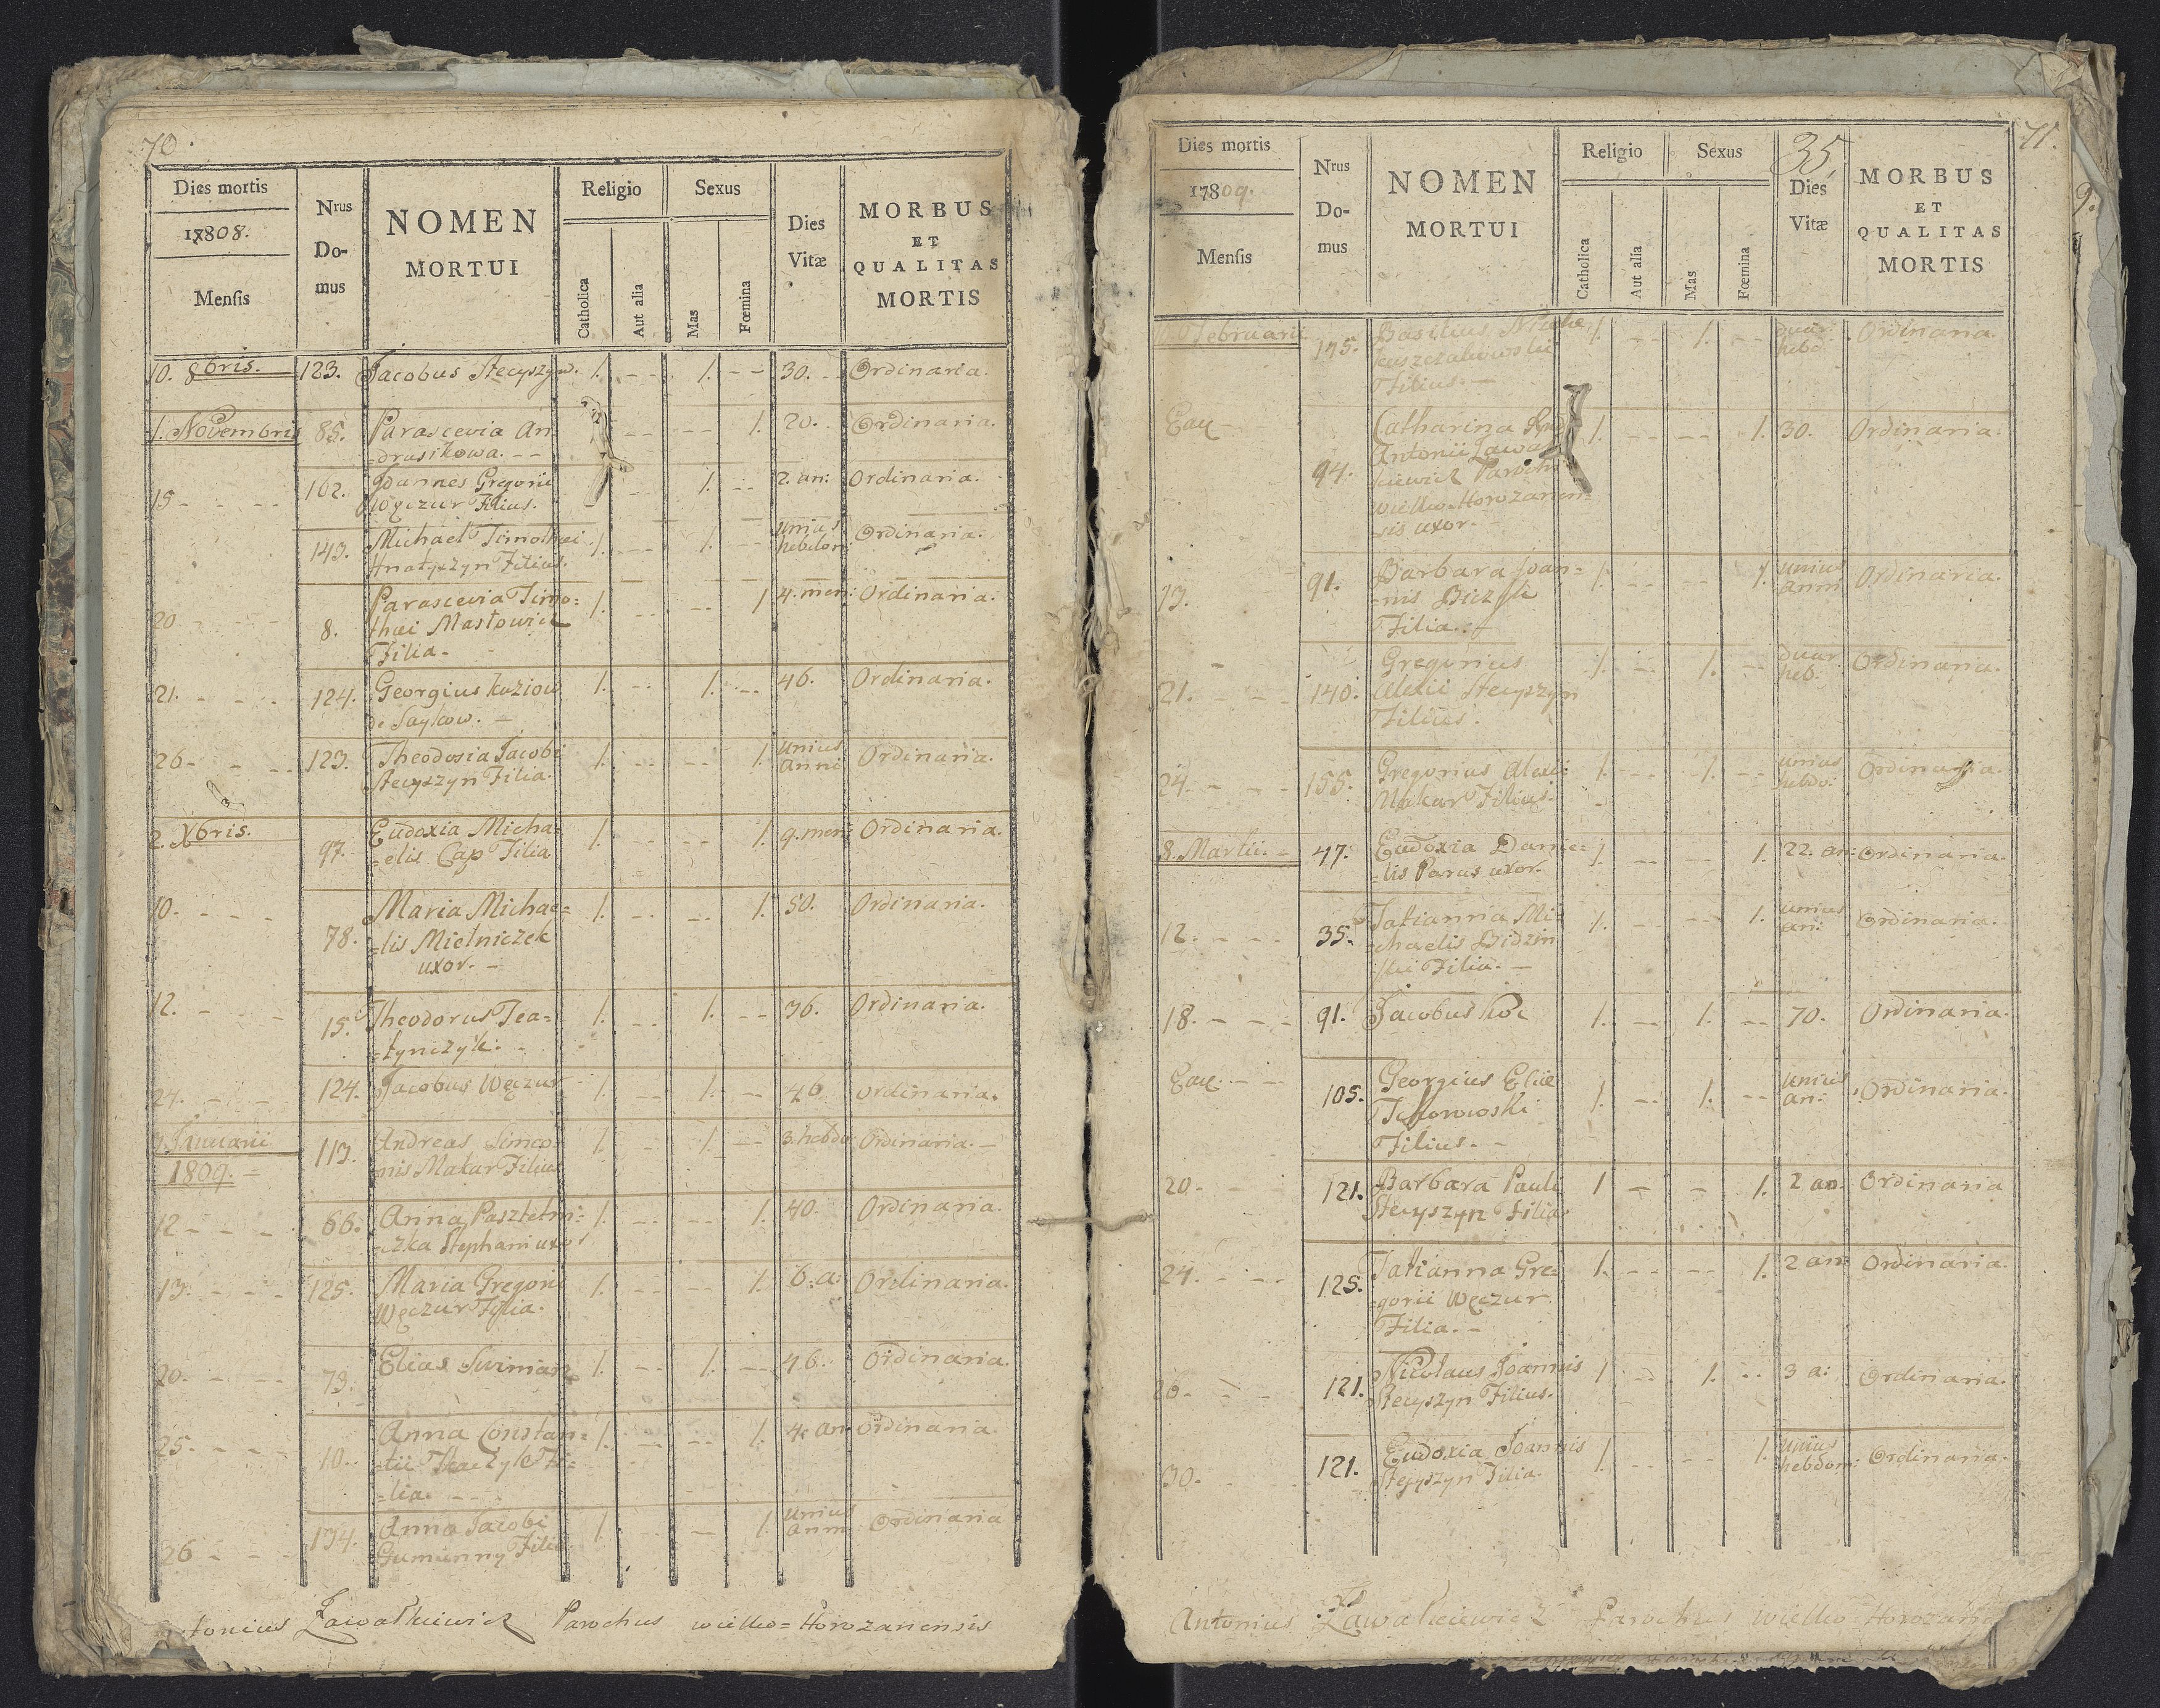 70.
Dies mortis
17808.
Mensis
Nrus
Do-
mus
NOMEN
MORTUI
Religio
Catholica
Aut alia
Sexus
Mas
Fœmina
Dies
Vitæ
MORBUS
ET
QUALITAS
MORTIS
10. 8bris. 123. Jacobus Stecyszyn. 1. -- 1. -- 30. Ordinaria.
1. Novembris 85. Parascevia An= -- -- 1. 20. Ordinaria.
=drusikowa. --
15 - - - 102. Joannes Gregorii -- 1. -- 2. an: Ordinaria.
Węczur Filius.
143. Michael Timothei 1. -- 1. -- unius Ordinaria.
Hnatyszyn Filius. hebdom:
20 - - - 8. Parascevia Timo= 1. -- -- 1 4. men: Ordinaria.
thei Masłowicz
Filia-
21. - - - 124. Georgius Koziow 1. -- 1. -- 46. Ordinaria.
de Saykow. -
26- - - 123. Theodosia Jacobi 1. -- -- 1. unius Ordinaria.
Stecyszyn Filia. anni
2. Xbris. 97. Eudoxia Micha= 1. -- -- 1. 9. men: Ordinaria.
=elis Cap Filia
10. - - - 78. Maria Michae= 1. -- -- 1. 50. Ordinaria.
=lis Mielniczek
uxor. -
12. - - 15. Theodorus Tea= 1. -- 1. -- 36. Ordinaria.
=tynczyk. -
24. - - 124. Jacobus Węczur 1. -- 1. -- 46 ordinaria.
Januarii 113. Andreas Simeo 1. -- 1. -- 3. hebdo Ordinaria. -
1809. = nis Makar Filius
12 - - - 66. Anna Pasztetni= 1. -- -- 1. 40. Ordinaria.
=czka Stephani uxor
13. - - - 125. Maria Gregorii 1. -- -- 1. 6. a: Ordinaria.
Węczur Filia.
20. - - - 73. Elias 1. -- 1. -- 46. Ordinaria.
25. - - - 10. Anna Constan= 1. -- -- 1. 4. an: ordinaria.
=tii Tkaczyk Fi=
=lia. - -
26 - - - 134. Anna Jacobi 1. -- - 1. unius Ordinaria
Gumenny Filia anni
Antonius Zawałkiewicz Parochus wielko=Horozanensis
71.
35
Dies mortis
17809.
Mensis
Nrus
Do-
mus
NOMEN
MORTUI
Religio
Catholica
Aut alia
Sexus
Mas
Fœmina
Dies
Vitæ
MORBUS
ET
QUALITAS
MORTIS
Februarii 145. Basilius 1. -- 1. -- duar: Ordinaria.
hebd.
Filius. -
Eau - 94. Catharina 1. -- -- 1. 30. Ordinaria.
Antonii Zawał
kiewicz Paroch
wielko=Horozanen=
sis uxor. -
13. 91. Barbara Joan= 1. -- -- 1. unius Ordinaria.
=nis anni
Filia. -
21. - - - 140. Gregorius 1. -- 1. -- duar: Ordinaria.
Alexii Stecyszyn heb.
Filius.
24. - - - 155. Gregorius Alexi= 1. -- 1. -- unius Ordinaria.
Makar Filius. hebdo:
8. Martii. - 47. Eudoxia Danie= 1. -- -- 1. 22. an: Ordinaria.
=lis Parus uxor.
12. - - - 35. Tatianna Mi= 1. -- -- 1. unius Ordinaria.
=chaelis Bidzin an:
ski Filia. -
18. - - - 91. Jacobus Koc 1. -- 1. -- 70. Ordinaria.
Eau. - - 105. Georgius Eliæ 1. -- 1. -- unius Ordinaria.
an:
Filius. -
20. - 121. Barbara Pauli 1 - - 1. 2 an. Ordinaria
Stecyszyn Filia
24. - - - 125. Tatianna Gre= 1. -- -- 1. 2 an: Ordinaria.
=gorii Węczur.
Filia. -
26. - - - 121. Nicolaus Joannis 1 -- 1. -- 3 a: Ordinaria.
Stecyszyn Filius.
30. - 121. Eudoxia Joannis 1. -- -- 1. unius Ordinaria.
Stecyszyn Filia. hebdom:
Antonius Zawałkiewicz Parochus wielko Horozan